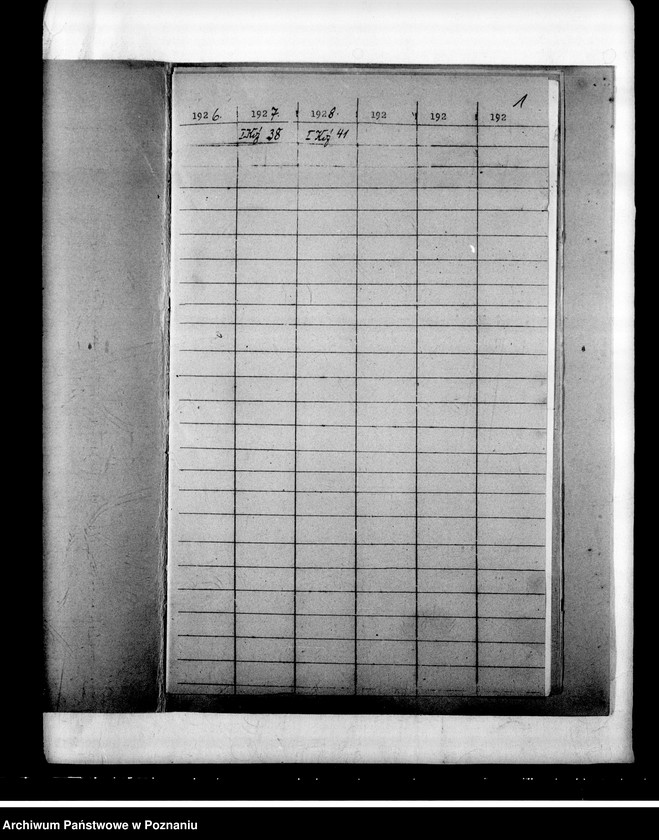 1
1926. 1927. 1928. 192 192 192
38 41
Archiwum Państwowe w Poznaniu